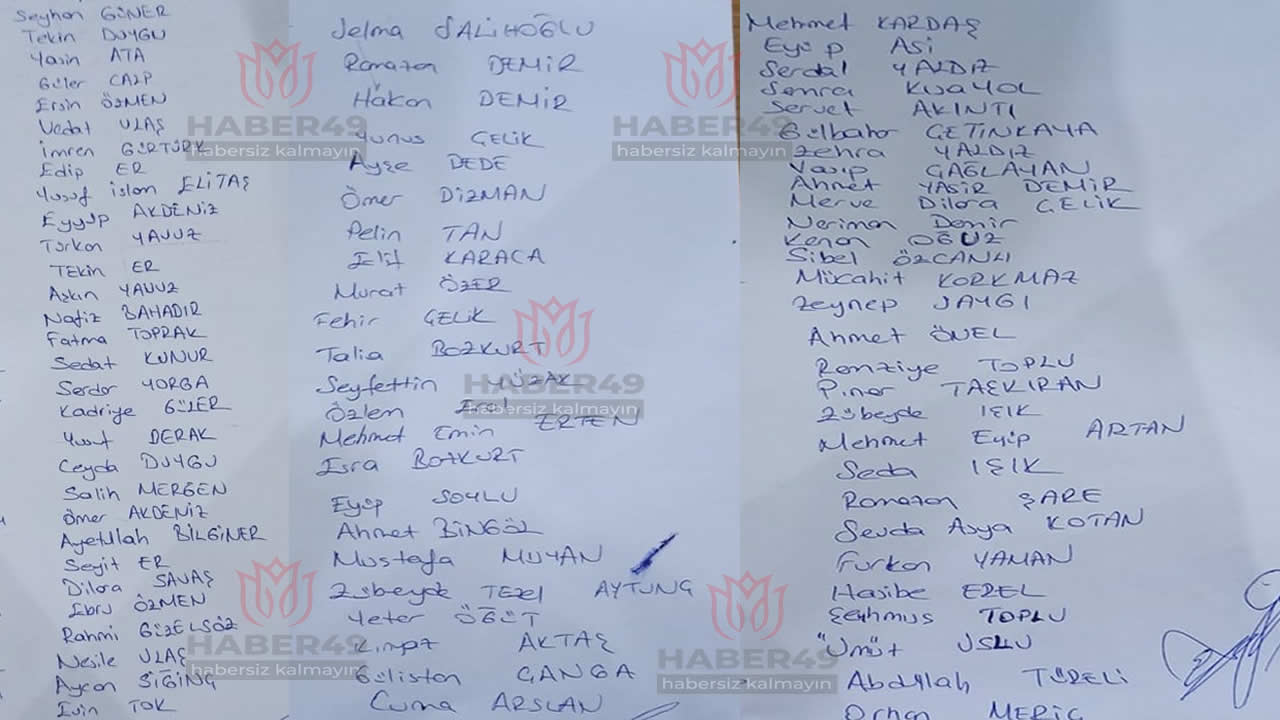 Seyhan GÜNER
Tekin DUYGU
Yasin ATA
Güler CALP
Ersin ÖZMEN
Vedat ULAŞ
İmren GÜRTÜRK
Edip ER
Yusuf islam ELİTAŞ
Eyyüp AKDENİZ
Türkan YAVUZ
TEkin ER
Aşkın YAVUZ
Nafiz BAHADIR
Fatma TOPRAK
Sedat KUNUR
Serdar YORGA
Kadriye GÜLER
Yusuf DERAK
Ceyda DUYGU
Salih MERGEN
Ömer AKDENİZ
Ayetullah BİLGİNER
Seyit ER
Dilara SAVAŞ
Ebru ÖZMEN
Rahmi GÜZELSÖZ
Nesile ULAŞ
Aycan
Evin TOK
Selma SALİHOĞLU
Ramazan DEMİR
Hakan DEMİR
Yunus ÇELİK
Ayşe DEDE
Ömer DİZMAN
Pelin TAN
Elif KARACA
Murat ÖZER
Fehir ÇELİK
Talia BOZKURT
Seyfettin
Özlem Erol
Mehmet Emin ERTEN
Esra BOZKURT
Eyüp SOYLU
Ahmet BİNGÖL
Mustafa MUYAN
Zübeyde TEZEL AYTUNÇ
Yeter ÖĞÜT
AKTAŞ
Gülistan ÇANGA
Cuma ARSLAN
Mehmet KARDAŞ
Eyüp Asi
Serdal YALDIZ
Semra KISAYOL
Servet AKINTI
Gülbahar ÇETİNKAYA
Zehra YALDIZ
Vasıp ÇAĞLAYAN
Ahmet YASİR DEMİR
Merve Dilara ÇELİK
Neriman Demir
Kenan OĞUZ
Sibel ÖZCANLI
Mücahit KORKMAZ
Zeynep SAYGI
Ahmet ÖNEL
Remziye TOPLU
Pınar TAŞKIRAN
Zübeyde IŞIK
Mehmet Eyüp ARTAN
Seda IŞIK
Ramazan ŞARE
Sevda Asya KOTAN
Furkan YAMAN
Hasibe EREL
Şeyhmus TOPLU
Ümüt USLU
Abdullah TÜRELİ
Orhan MERİÇ
HABER49
habersiz kalmayın
HABER49
habersiz kalmayın
HABER49
habersiz kalmayın
HABER49
habersiz kalmayın
HABER49
habersiz kalmayın